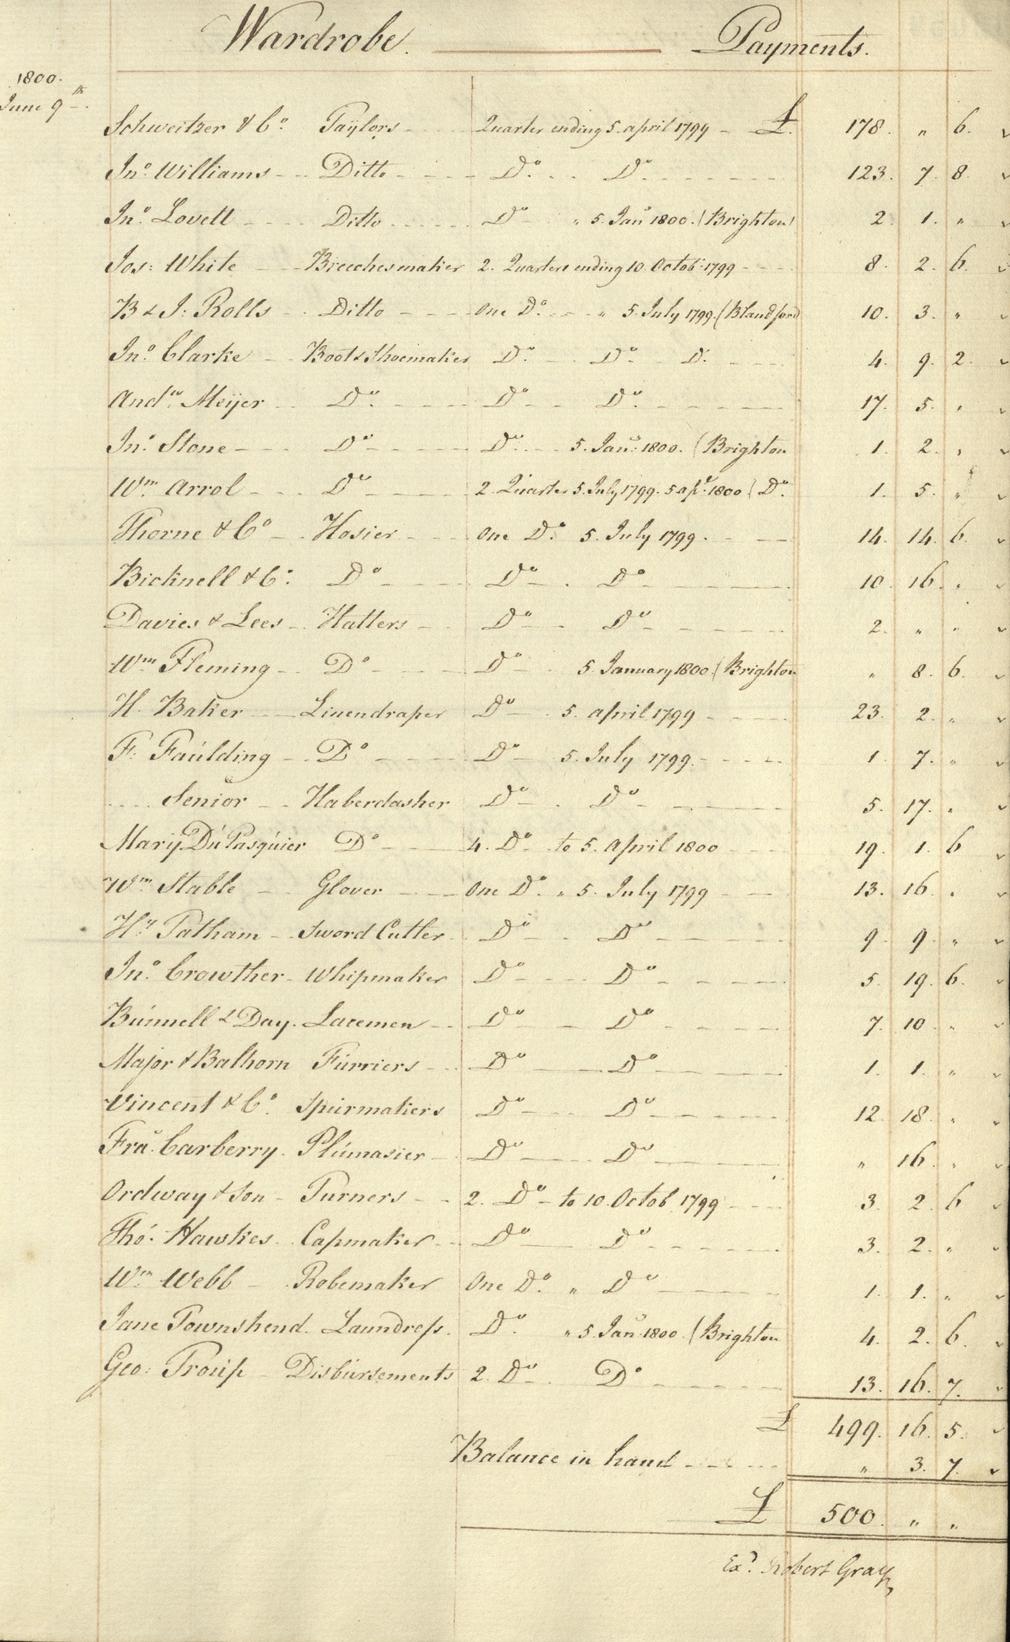 Wardrobe. Payments.
1800.
June 9th.
Schweitzer & Co. Taylors Quarter ending 5. april 1799 £. 178. " 6.
Jno. Williams Ditto Do. Do. 123. 7. 8.
Jno. Lovell Ditto Do " 5 Jany 1800. (Brighton) 2. 1. "
Jos: White Breechesmaker 2. Quarters ending 10. Octob. 1799 8. 2. 6.
B & J. Rolls Ditto One Do. " 5. July 1799. (Blandford 10. 3. "
Jno. Clarke Boot & Shoemaker Do. Do. D. 4. 9. 2.
Andw. Meijer Do. Do. Do. 17. 5. "
Jno. Stone Do Do 5. Jany. 1800. (Brighton 1. 2. "
Wm. Arrol Do 2. Quarter 5. July 1799. 5 apl. 1800 (Do. 1. 5. "
Thorne & Co Hosier One Do. 5. July 1799. 14. 14. 6.
Bicknell & Co. Do Do Do 10. 16. "
Davies & Lees Hatters Do Do 2. " "
Wm Fleming Do Do 5 January 1800 (Brighton " 8. 6.
H. Baker Linendraper Do 5. april 1799 23. 2. "
F. Faulding Do Do 5. July 1799. 1. 7. "
Senior Haberdasher Do Do 5. 17. "
Mary Du Pasquier Do 4. Do. to 5. April 1800 19. 1. 6
Wm Stable Glover One Do. " 5. July 1799 13. 16. "
Hy Tatham Sword Cutler Do Do 9. 9. "
Jno. Crowther Whipmaker Do Do 5. 19. 6.
Bunnell & Day. Lacemen Do Do 7. 10. "
Major & Balhorn Furriers Do Do 1. 1. "
Vincent & Co. Spurmakers Do Do 12. 18. "
Fra. Carberry. Plumasier Do Do " 16. "
Ordway & Son Turners 2. Do to 10. Octob. 1799 3. 2. 6
Tho. Hawkes Capmaker Do Do 3. 2. "
Wm Webb Robemaker One Do. " Do 1. 1. "
Jane Townshend. Laundress. Do. " 5. Jany 1800. (Brighton 4. 2. 6.
Geo: Troup Disbursements 2. Do Do 13. 16. 7.
£ 499. 16. 5.
Balance in hand " 3. 7.
£ 500. " "
Exd. Robert Gray